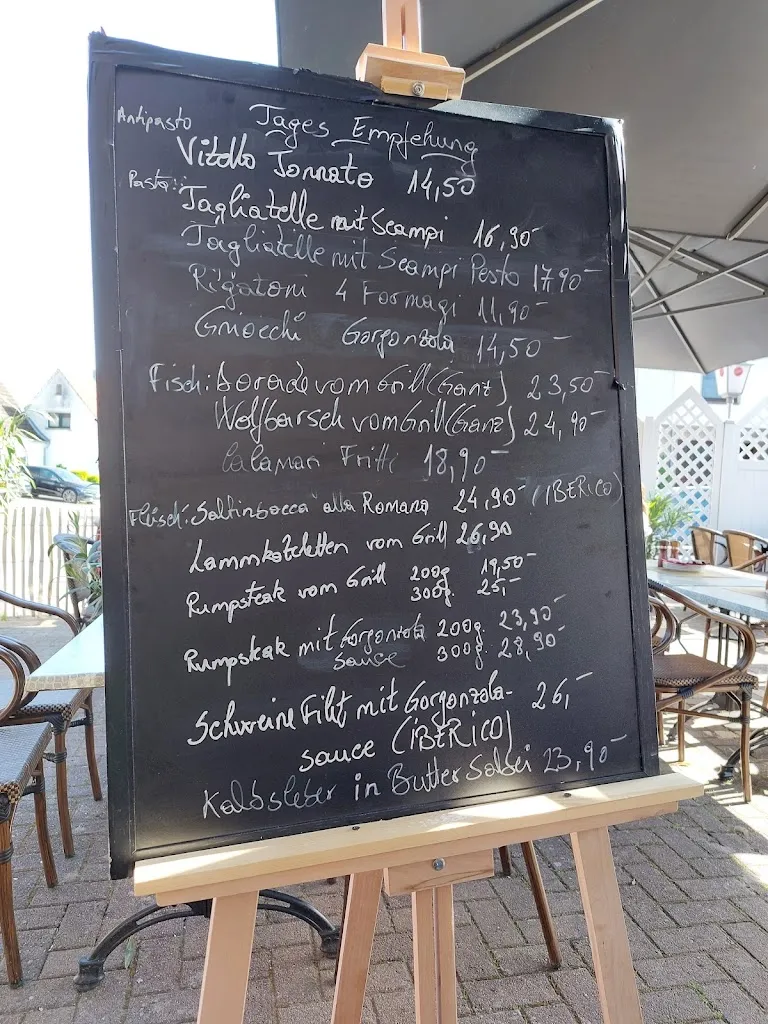 Tages Empfehung
Antipasto
Vitello Tonnato 14,50
Pasta:
Tagliatelle mit Scampi 16,90-
Tagliatelle mit Scampi Pesto 17,90-
Rigatoni 4 Formagi 11,90-
Gniocchi Gorgonzola 14,50-
Fisch: Dorade vom Grill (Ganz) 23,50-
Wolfbarsch vom Grill (Ganz) 24,90-
Calamari Fritti 18,90-
Fleisch: Saltinbocca alla Romana 24,90- (IBERICO)
Lammkoteletten vom Grill 26,90
Rumpsteak vom Grill 200g 19,50-
300g. 25,-
Rumpsteak mit Gorgonzola 200g. 23,90-
Sauce 300g. 28,90-
Schweine Filet mit Gorgonzola- 26,-
sauce (IBERICO)
Kalbsleber in Butter Salbei 23,90-